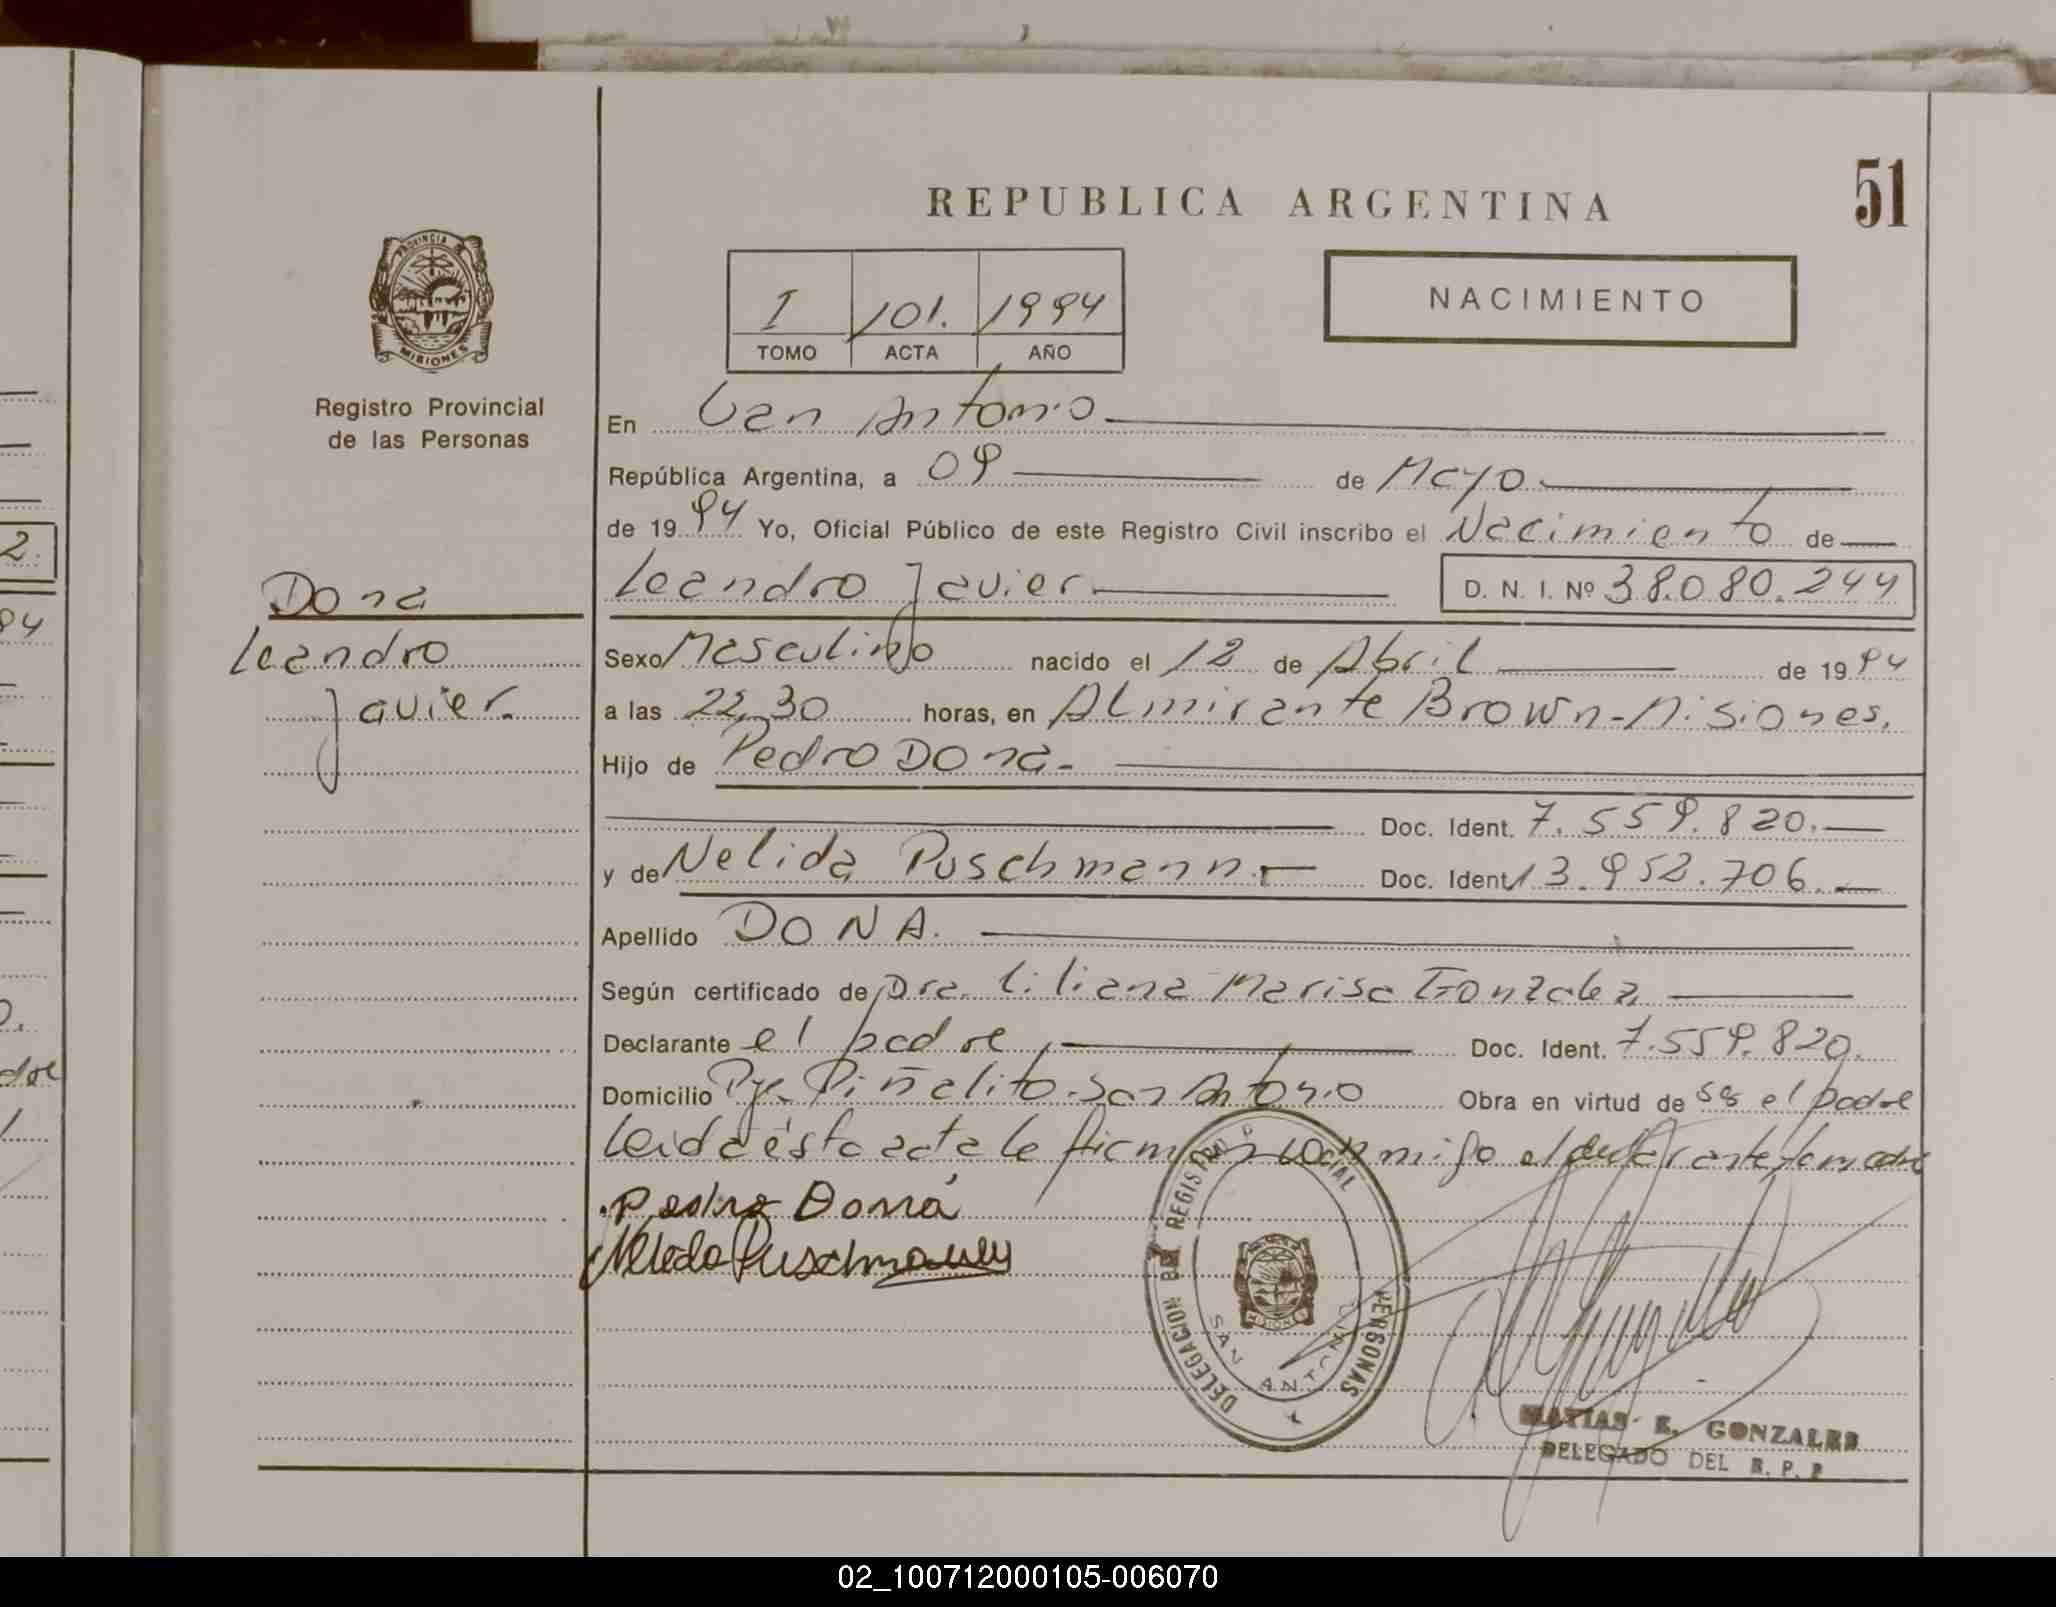 REPUBLICA ARGENTINA
51
PROVINCIA DE
MISIONES
Registro Provincial
de las Personas
I 101. 1994
TOMO ACTA AÑO
NACIMIENTO
En San Antonio
República Argentina, a 09 de Mayo
de 1994 Yo, Oficial Público de este Registro Civil inscribo el Nacimiento de
Leandro Javier D. N. I. Nº 38.080.244
Dona
Leandro
Javier.
Sexo Masculino nacido el 12 de Abril de 1994
a las 22,30 horas, en Almirante Brown-Misiones.
Hijo de Pedro Dona-
Doc. Ident. 7.559.820.
y de Nelida Puschmann Doc. Ident. 13.952.706.
Apellido DONA.
Según certificado de Dra. Liliana Marisa Gonzalez
Declarante el padre Doc. Ident. 7.559.820.
Domicilio Pje. Piñalito-San Antonio Obra en virtud de ser el padre
Leida ésta acta la firman conmigo el declarante, la madre
Pedro Doná
Nelida Puschmann
DELEGACION REGISTRO PROVINCIAL PERSONAS
SAN ANTONIO
MATIAS E. GONZALES
DELEGADO DEL R. P. P
2.
94
dre
02_100712000105-006070